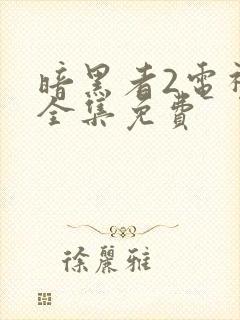 暗黑者2電視
全集免費
徐麗雅